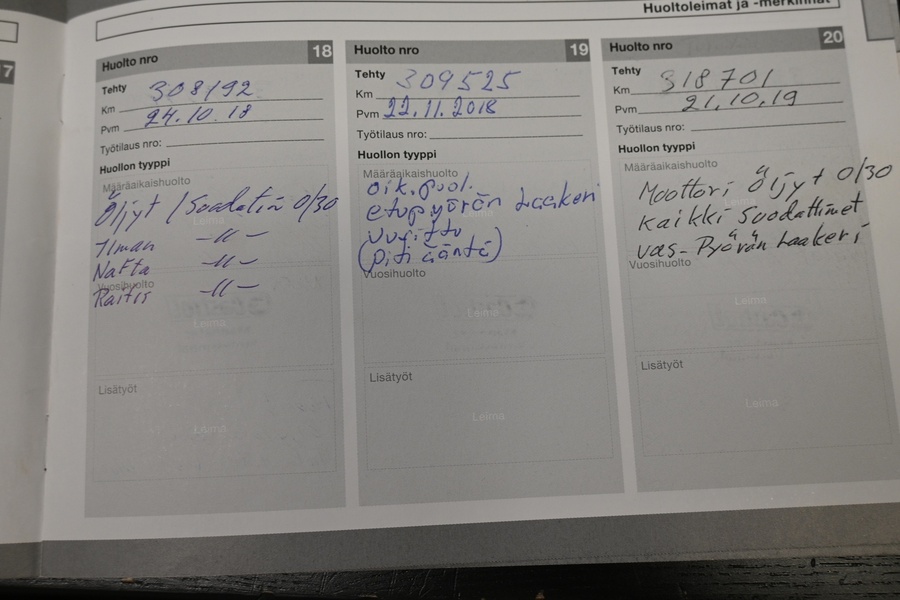 Huoltoleimat ja -merkinnät
7
Huolto nro 18
Tehty
Km 308192
Pvm 24.10.18
Työtilaus nro:
Huollon tyyppi
Määräaikaishuolto
Öljyt / Suodatin 0/30
Ilman -"-
Nafta -"-
Vuosihuolto
Raitis -"-
Leima
Lisätyöt
Leima
Huolto nro 19
Tehty
Km 309525
Pvm 22.11.2018
Työtilaus nro:
Huollon tyyppi
Määräaikaishuolto
oik.puol.
etupyörän Laakeri
uusittu
(piti ääntä)
Vuosihuolto
Leima
Lisätyöt
Leima
Huolto nro 20
Tehty
Km 318701
Pvm 21.10.19
Työtilaus nro:
Huollon tyyppi
Määräaikaishuolto
Moottori Öljyt 0/30
Kaikki Suodattimet
vas- Pyörän Laakeri
Vuosihuolto
Leima
Lisätyöt
Leima